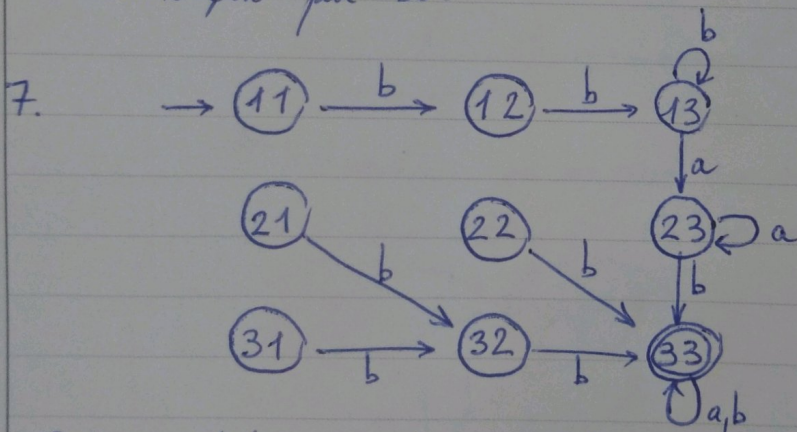 b
7. 11 b 12 b 13
a
21 b 22 b 23 a
b
31 b 32 b 33
a,b